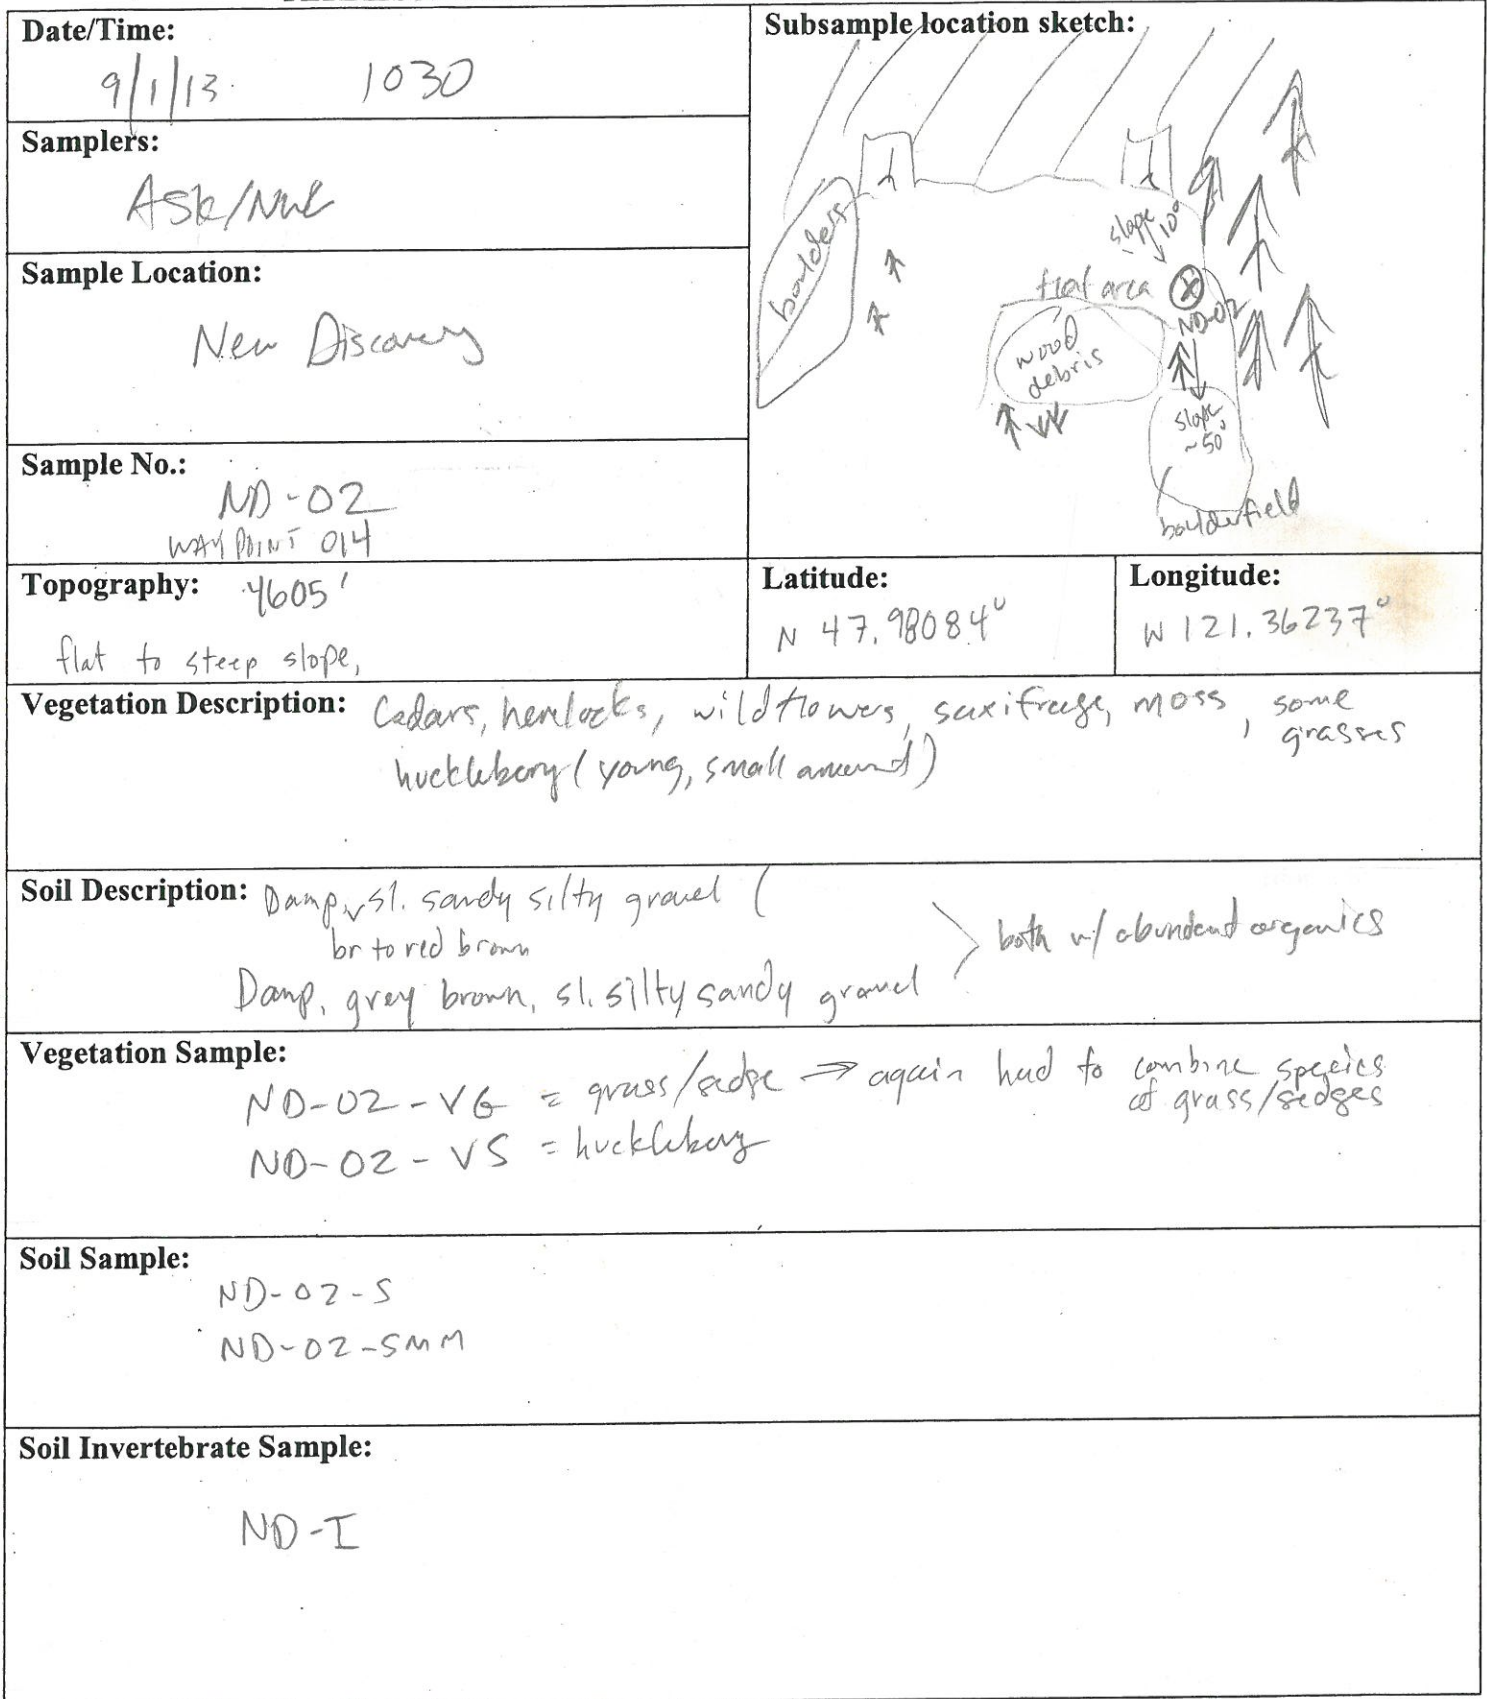 Date/Time:
9/1/13. 1030
Samplers:
Sample Location:
New Discovery
Sample No.:
ND-02
WAYPOINT 014
Subsample location sketch:
boulders
slope
10°
flat area
ND-02
wood
debris
slope
~50°
boulderfield
Topography: 4605'
flat to steep slope,
Latitude:
N 47.98084°
Longitude:
W 121.36237°
Vegetation Description: Cedars, hemlocks, wildflowers, saxifrage, moss, some
grasses
huckleberry (young, small amount)
Soil Description: Damp, sl. sandy silty gravel (
br to red brown
Damp, grey brown, sl. silty sandy gravel
both w/ abundant organics
Vegetation Sample:
ND-02-VG = grass/sedge → again had to combine species
of grass/sedges
ND-02-VS = huckleberry
Soil Sample:
ND-02-S
ND-02-SMM
Soil Invertebrate Sample:
ND-I